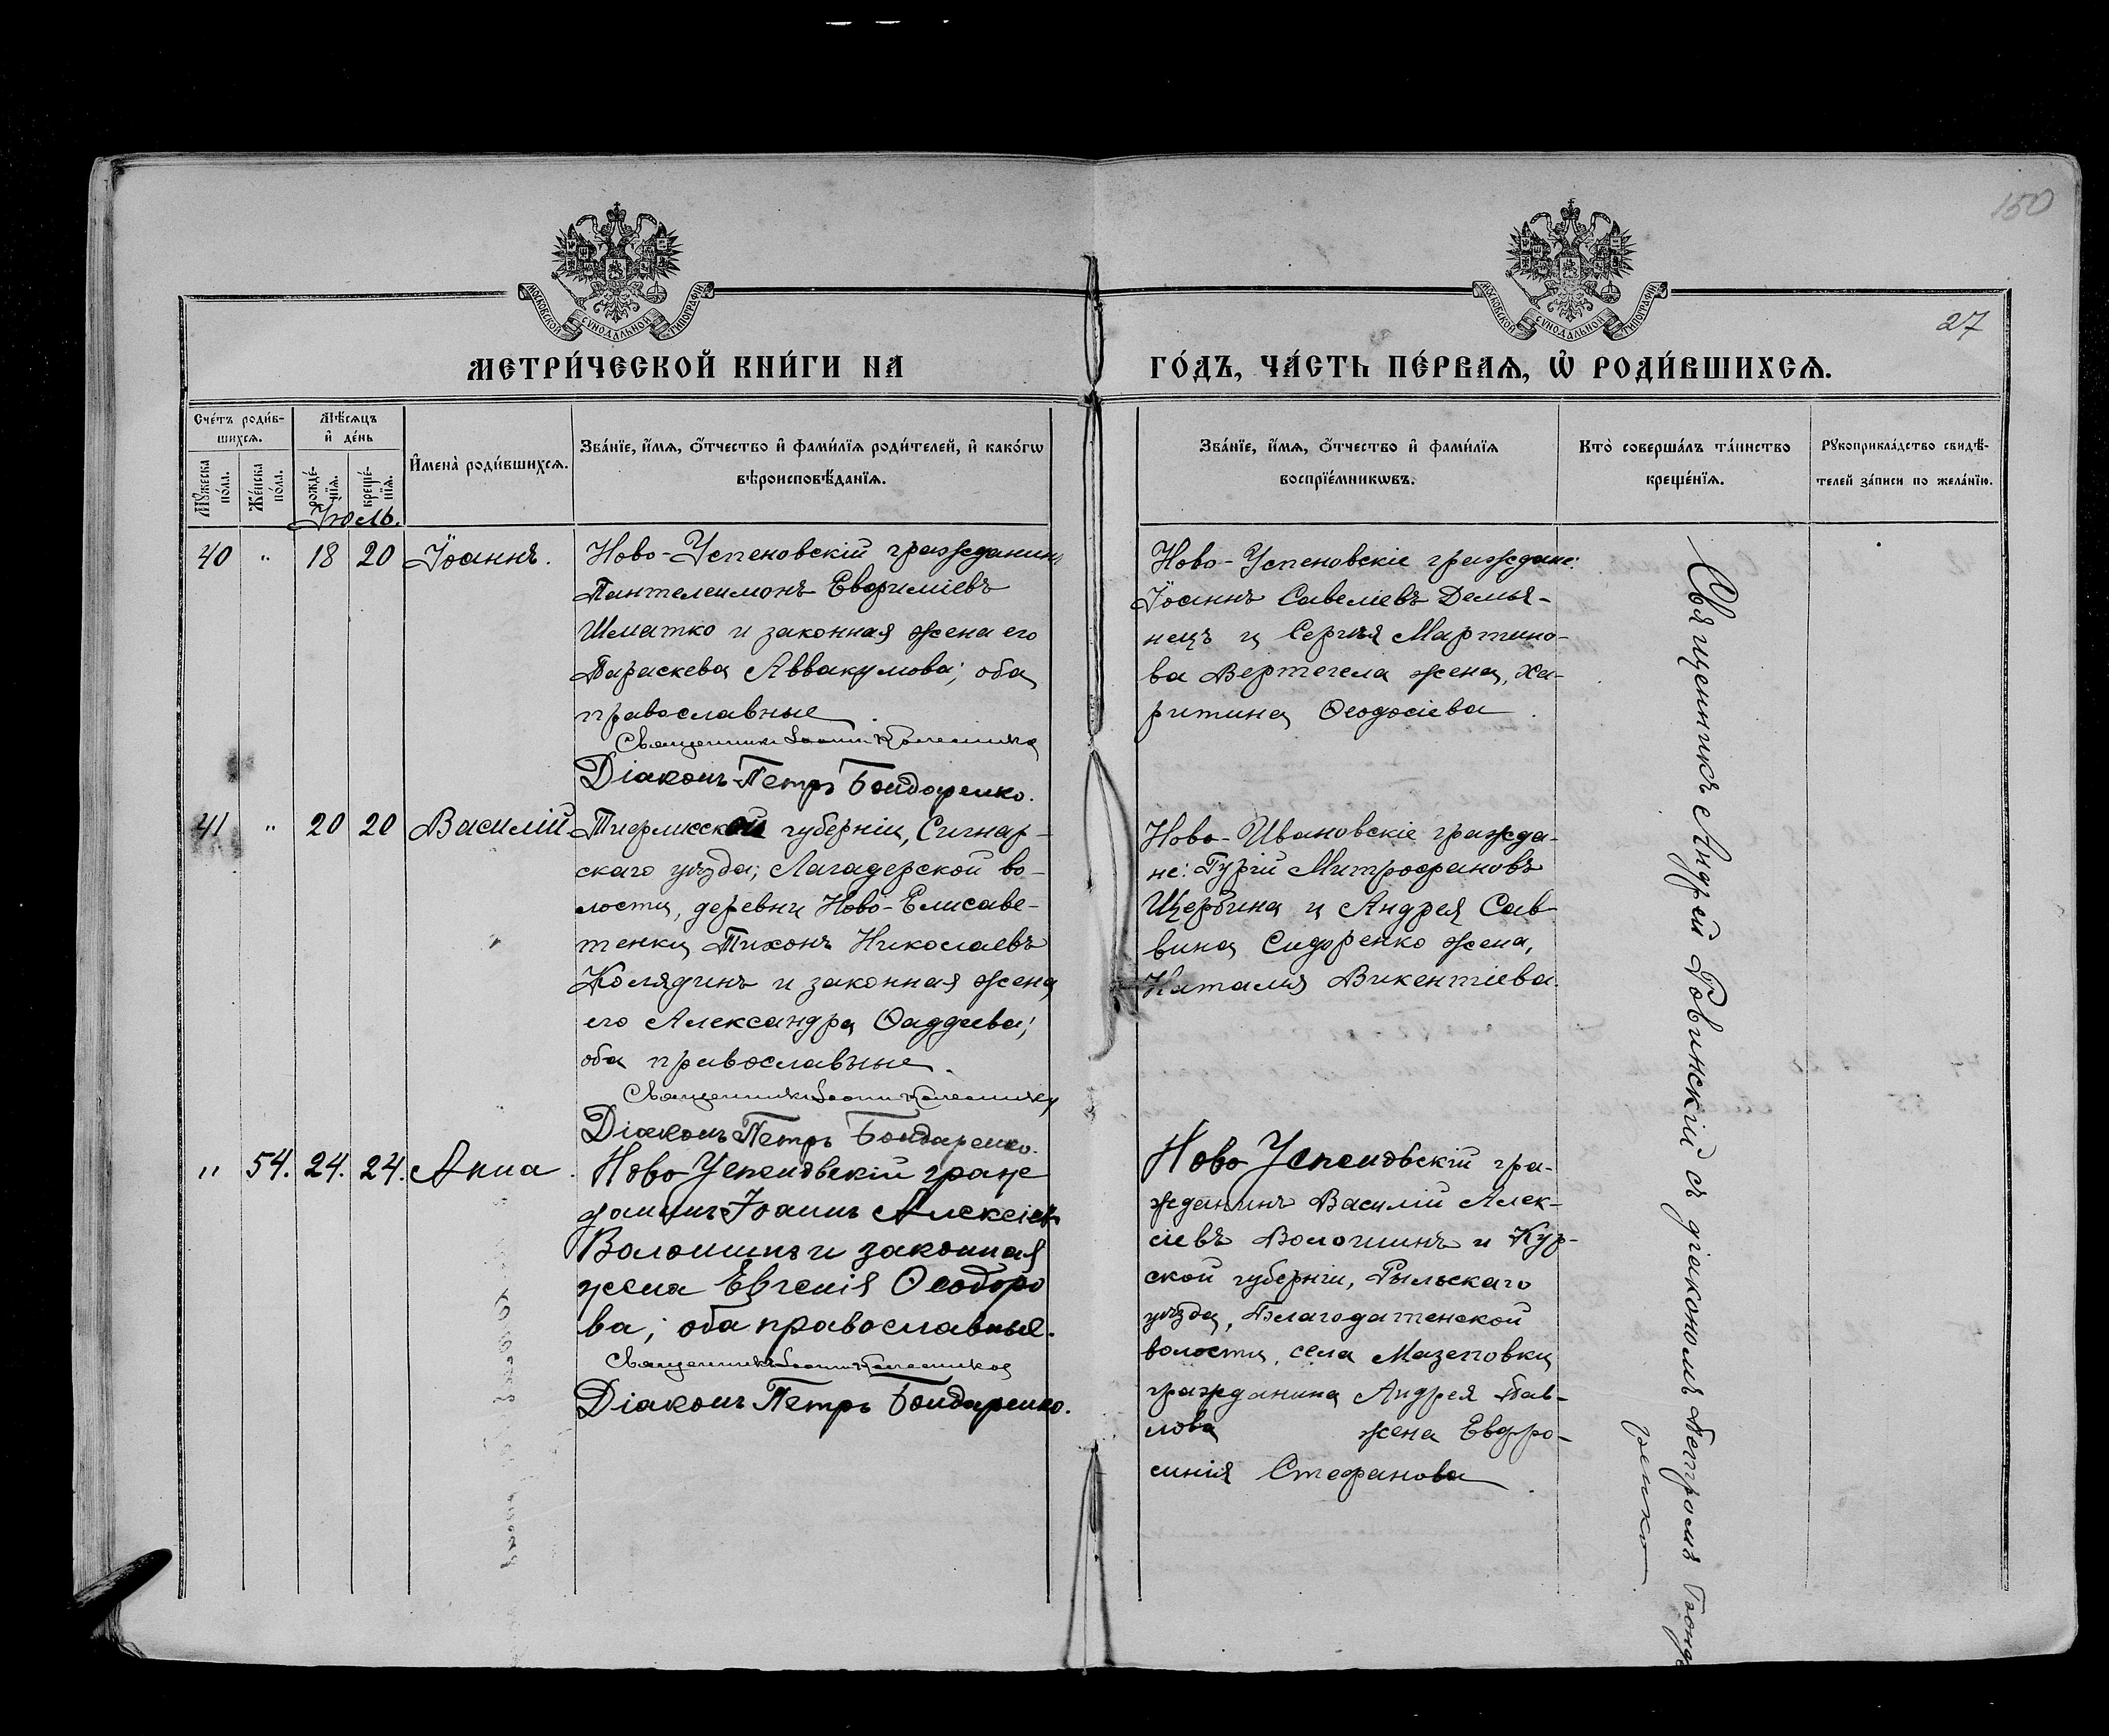 150
27
МОСКОВСКОЙ СУНОДАЛЬНОЙ ТИПОГРАФІИ
МОСКОВСКОЙ СУНОДАЛЬНОЙ ТИПОГРАФІИ
МЕТРИ́ЧЕСКОЙ КНИ́ГИ НА
ГО́ДЪ, ЧА́СТЬ ПЕ́РВАѦ, Ѡ РОДИ́ВШИХСѦ.
Сче́тъ роди́в-
шихсѧ.
Мꙋжеска по́ла.
Же́нска по́ла.
Мѣ́сѧцъ
и҆ де́нь
рожде́-
нїѧ.
креще́-
нїѧ.
И҆мена̀ роди́вшихсѧ.
Зва́нїе, и҆́мѧ, ѻ҆́тчество и҆ фами́лїѧ роди́телей, и҆ како́гѡ
вѣроисповѣ́данїѧ.
Зва́нїе, и҆́мѧ, ѻ҆́тчество и҆ фами́лїѧ
воспрїе́мникѡвъ.
Кто̀ соверша́лъ та́инство
креще́нїѧ.
Рꙋкоприкла́дство свидѣ́-
телей за́писи по жела́нїю.
Іюль.
40 " 18 20 Іоаннъ.
Ново-Успеновскій гражданинъ
Пантелеимонъ Евфиміевъ
Шматко и законная жена его
Параскева Аввакумова; оба
православные.
Священникъ Іоаннъ
Діаконъ Петръ Бондаренко.
Ново-Успеновскіе граждане:
Іоаннъ Савеліевъ Демья-
нецъ и Сергѣя Мартино-
ва Вертегела жена, Ха-
ритина Ѳеодосіева.
41 " 20 20 Василій.
Тифлисской губерніи, Сигнах-
скаго уѣзда, Лагодехской во-
лости, деревни Ново-Елисаве-
тенки Тихонъ Николаевъ
Колядинъ и законная жена
его Александра Ѳаддеева;
оба православные.
Священникъ Іоаннъ
Діаконъ Петръ Бондаренко.
Ново-Ивановскіе гражда-
не: Гурій Митрофановъ
Щербина и Андрея Сав-
вина Сидоренко жена,
Наталія Викентіева.
" 54. 24. 24. Анна.
Ново Успеновскій граж
данинъ Іоаннъ Алексіевъ
Волошинъ и законная
жена Евгенія Ѳеодоро
ва; оба православные.
Священникъ Іоаннъ
Діаконъ Петръ Бондаренко.
Ново Успеновскій гра-
жданинъ Василій Алек-
сіевъ Волошинъ и Кур-
ской губерніи, Рыльскаго
уѣзда, Благодатенской
волости, села Мазеповки
гражданина Андрея Пав-
лова жена Евфро-
синія Стефанова.
Священникъ Андрей Ровинскій съ діакономъ Петромъ Бонда
ренко.